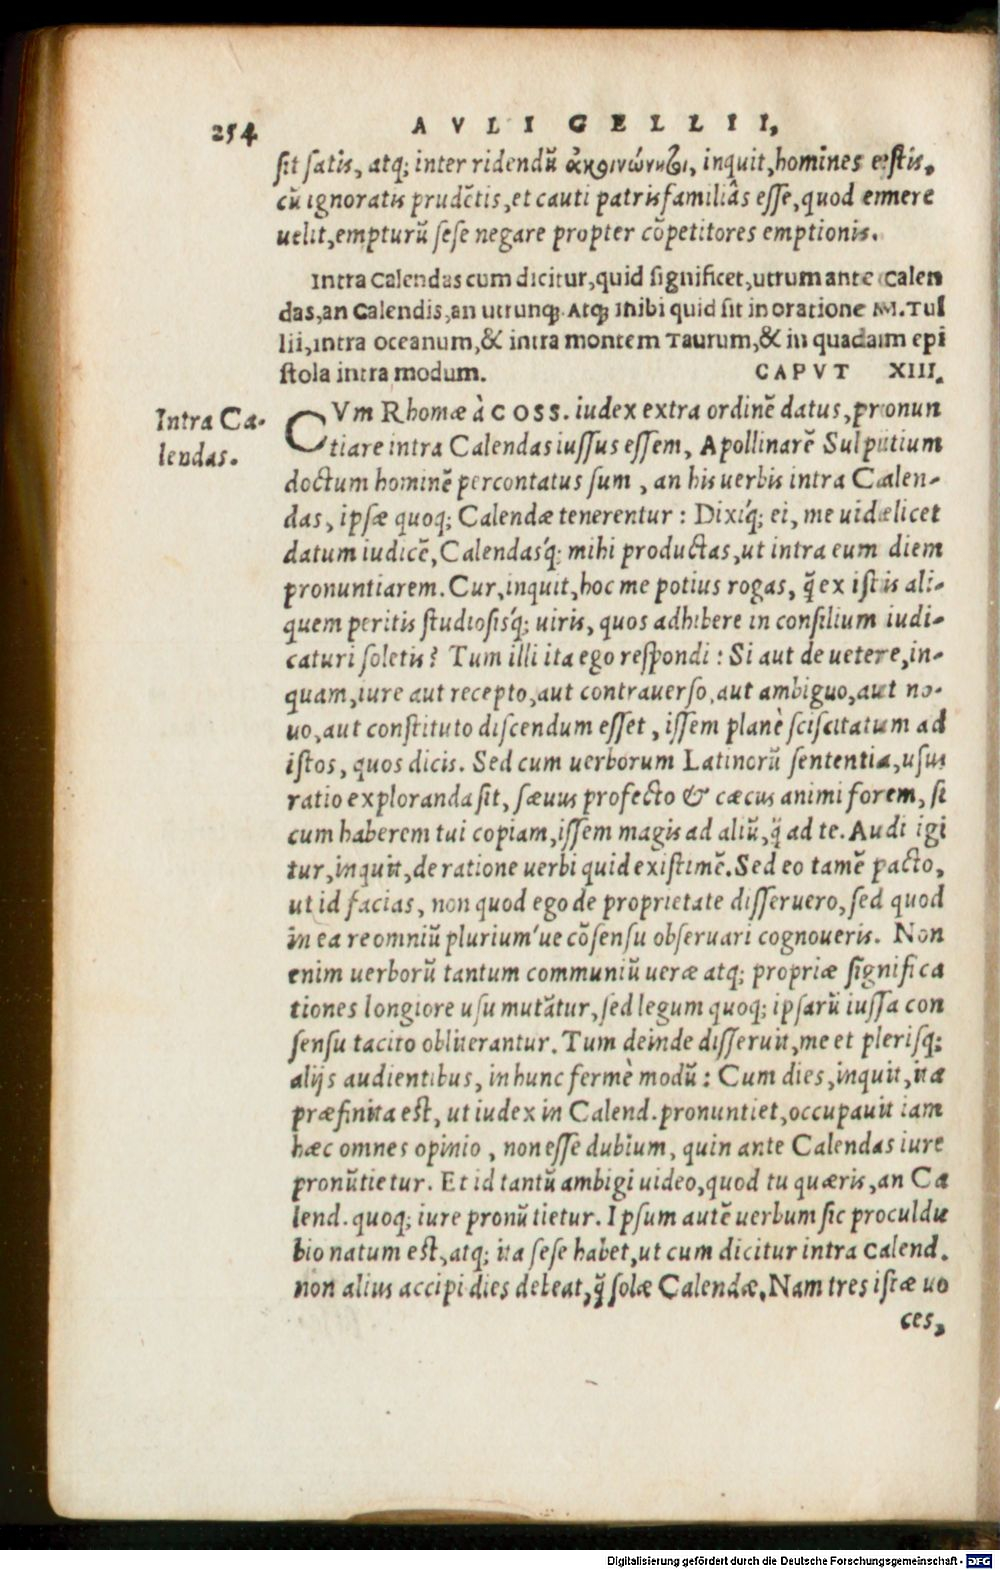 254 AVLI GELLII,
sit satis, atq; inter ridendũ inquit, homines estis,
cũ ignoratis prudẽtis, et cauti patrisfamiliâs esse, quod emere
uelit, empturũ sese negare propter cõpetitores emptionis.
Intra Calendas cum dicitur, quid significet, utrum ante Calen
das, an Calendis, an utrunq; Atq; inibi quid sit in oratione M. Tul
lii, intra oceanum, & intra montem Taurum, & in quadam epi
stola intra modum. CAPVT XIII.
Intra Ca-
lendas.
CVm Rhomæ à COSS. iudex extra ordinẽ datus, pronun
tiare intra Calendas iussus essem, Apollinarẽ Sulpitium
doctum hominẽ percontatus sum, an his uerbis intra Calen-
das, ipsæ quoq; Calendæ tenerentur: Dixíq; ei, me uidelicet
datum iudicẽ, Calendasq́; mihi productas, ut intra eum diem
pronuntiarem. Cur, inquit, hoc me potius rogas, q̃ ex istis ali-
quem peritis studiosisq́; uiris, quos adhibere in consilium iudi-
caturi soletis? Tum illi ita ego respondi: Si aut de uetere, in-
quam, iure aut recepto, aut contrauerso, aut ambiguo, aut no-
uo, aut constituto discendum esset, issem planè sciscitatum ad
istos, quos dicis. Sed cum uerborum Latinorũ sententia, usus
ratio exploranda sit, sæuus profecto & cæcus animi forem, si
cum haberem tui copiam, issem magis ad aliũ, q̃ ad te. Audi igi
tur, inquit, de ratione uerbi quid existimẽ. Sed eo tamẽ pacto,
ut id facias, non quod ego de proprietate disseruero, sed quod
in ea re omniũ plurium'ue cõsensu obseruari cognoueris. Non
enim uerborũ tantum communiũ ueræ atq; propriæ significa
tiones longiore usu mutãtur, sed legum quoq; ipsarũ iussa con
sensu tacito obliterantur. Tum deinde disseruit, me et plerisq;
alijs audientibus, in hunc fermè modũ: Cum dies, inquit, ita
præfinita est, ut iudex in Calend. pronuntiet, occupauit iam
hæc omnes opinio, non esse dubium, quin ante Calendas iure
pronũtietur. Et id tantũ ambigi uideo, quod tu quæris, an Ca
lend. quoq; iure pronũtietur. Ipsum autẽ uerbum sic proculdu
bio natum est, atq; ita sese habet, ut cum dicitur intra Calend.
non alius accipi dies debeat, q̃ solæ Calendæ. Nam tres istæ uo
ces,
Digitalisierung gefördert durch die Deutsche Forschungsgemeinschaft - DFG